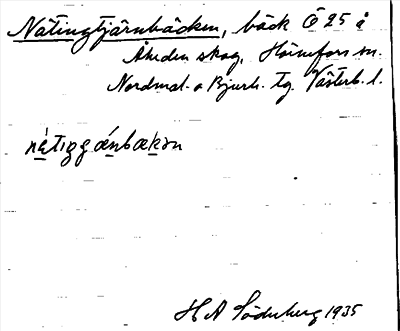 Nätingtjärnbäcken, bäck Ö 25 å
Åheden skog, Hörnefors sn.
Nordmal. o Bjurh. tg Västerb. l.
nǽtıggǽnbækən
H A Söderberg 1935